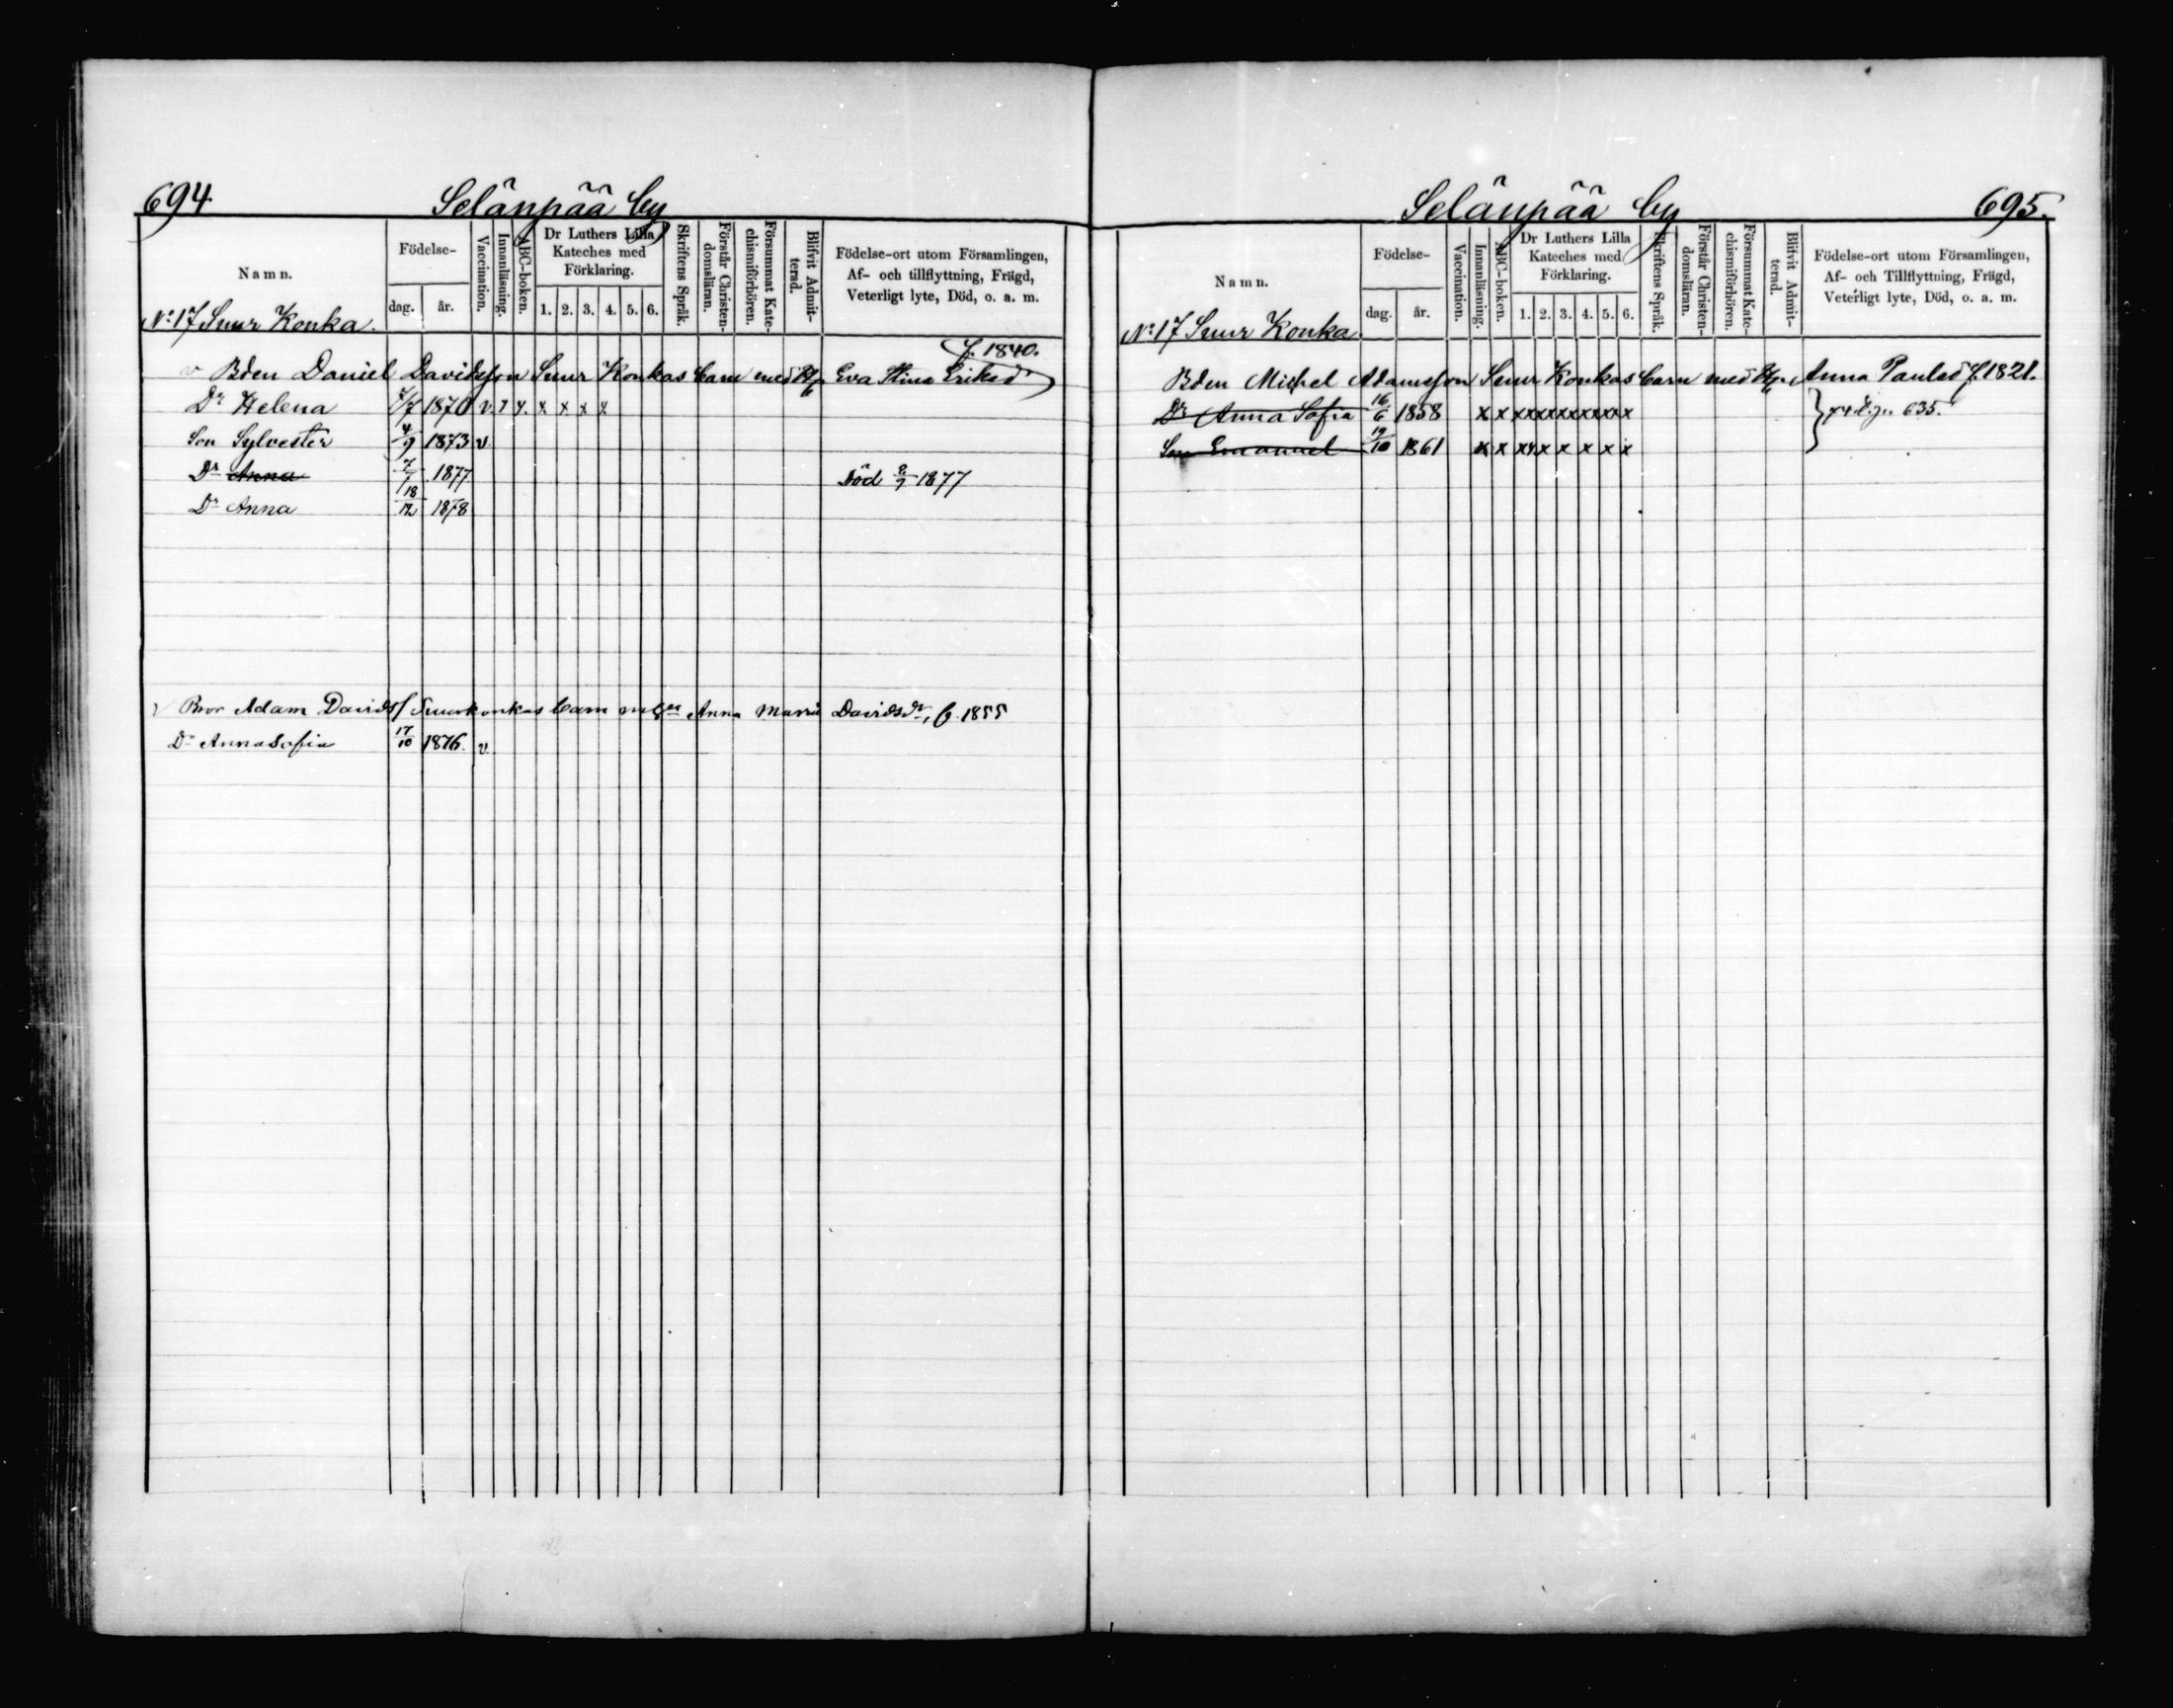 694. Selänpää by
Namn. Födelse- dag. år. Vaccination. Innanläsning. ABC-boken. Dr Luthers Lilla Kateches med Förklaring. 1. 2. 3. 4. 5. 6. Skriftens Språk. Förstår Christendomsläran. Försummat Katechismiförhören. Blifvit Admitterad. Födelse-ort utom Församlingen, Af- och tillflyttning, Frägd, Veterligt lyte, Död, o. a. m.
No 17 Suur Konka.
f. 1840.
v Bden Daniel Davidsson Suur Konkas barn med H Eva Stina Eriksdr
Dr Helena 1870 v. x x x x
Son Sylvester 4/9 1873 v.
Dr Anna 7/7 1877 Död 8/7 1877
Dr Anna 18/12 1878
v Bror Adam Davids Suurkonkas barn m Anna Maria Davidsdr, f. 1855
Dr Anna Sofia 17/10 1876. v.
Selänpää by 695.
Namn. Födelse- dag. år. Vaccination. Innanläsning. ABC-boken. Dr Luthers Lilla Kateches med Förklaring. 1. 2. 3. 4. 5. 6. Skriftens Språk. Förstår Christendomsläran. Försummat Katechismiförhören. Blifvit Admitterad. Födelse-ort utom Församlingen, Af- och Tillflyttning, Frägd, Veterligt lyte, Död, o. a. m.
No 17 Suur Konka
Bden Michel Adamsson Suur Konkas barn med H Anna Paulsd f. 1821.
Dr Anna Sofia 16/6 1858 x x xxxxxxxxxx
Son Emanuel 19/10 1861 x x xx x x x x x
635.